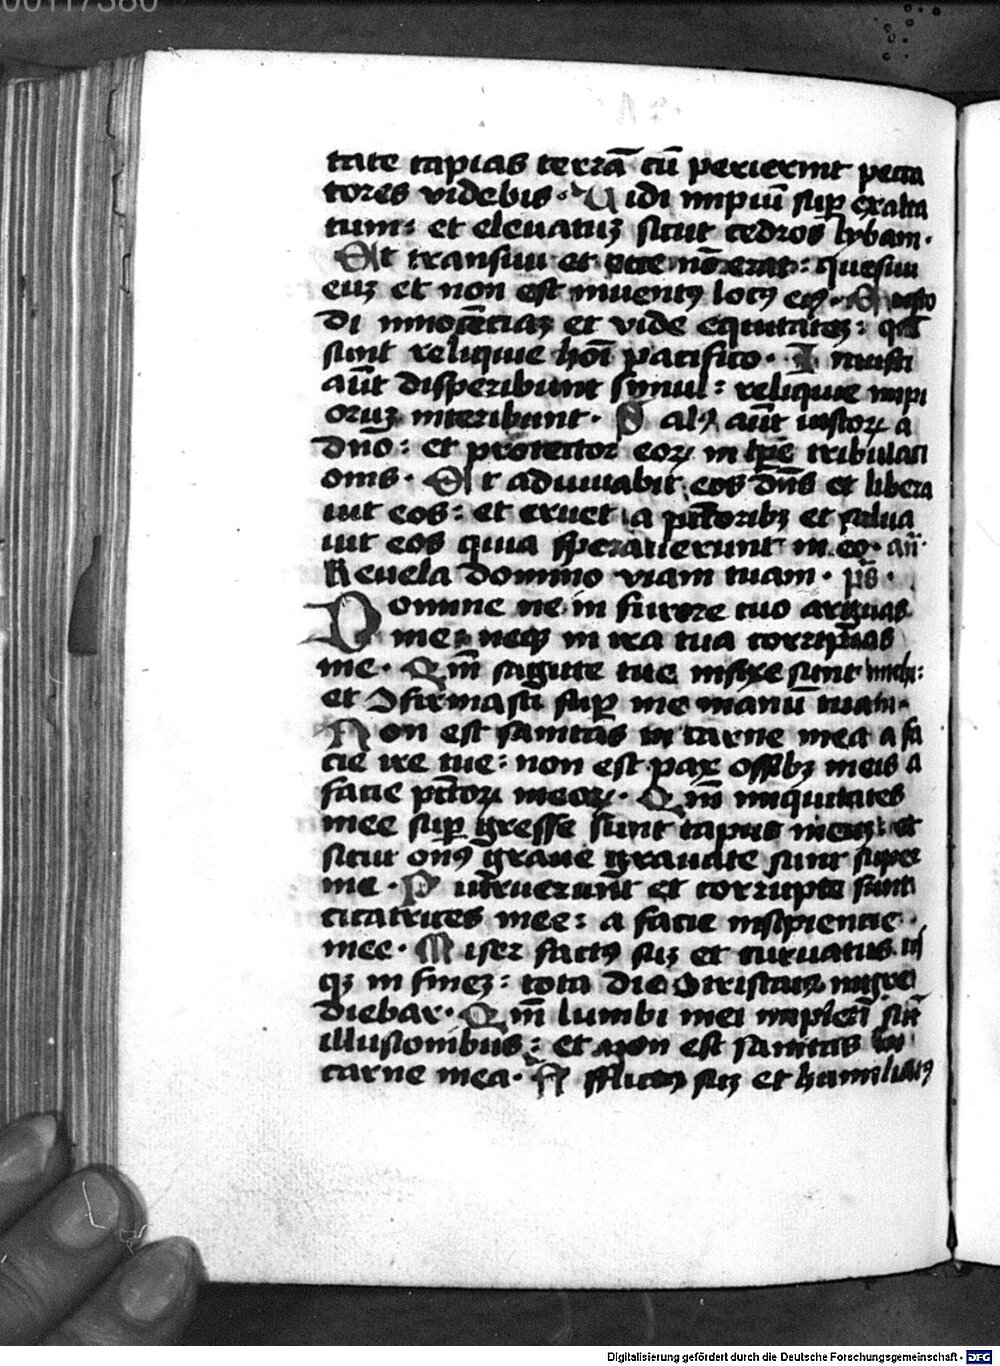 00117380
tate capias terrā cū perierint pecca
tores videbis · Vidi impiū suꝑ exalta
tum: et eleuatuꝫ sicut cedros lybani ·
Et transiui et ecce nō erat: quesiui
euꝫ et non est inuentꝰ locꝰ eiꝰ · Custo
di innocētiaꝫ et vide equitateꝫ: qm̄
sunt reliquie hoī pacifico · Iniusti
aūt disperibunt simul: reliquie impi
oruꝫ interibunt · Salꝰ aūt iustoꝝ a
dn̄o: et protector eoꝝ in tp̄e tribulati
onis · Et adiuuabit eos dn̄s et libera
bit eos: et eruet a pctōribꝫ et salua
bit eos quia sperauerunt in eo · an̄ ·
Reuela domino viam tuam · ps̄ ·
Domine ne in furore tuo arguas
me: neqꝫ in ira tua corripias
me · Qm̄ sagitte tue infixe sunt michi:
et ꝯfirmasti suꝑ me manū tuam ·
Non est sanitas in carne mea a fa
cie ire tue: non est pax ossibꝫ meis a
facie pctōꝝ meoꝝ · Qm̄ iniquitates
mee suꝑ gresse sunt caput meuꝫ: et
sicut onꝰ graue grauate sunt super
me · Putruerunt et corrupte sunt
cicatrices mee: a facie insipientie
mee · Miser factꝰ suꝫ et curuatus us
qꝫ in fineꝫ: tota die ꝯtristatꝰ ingre
diebar · Qm̄ lumbi mei impleti sūt
illusionibus: et non est sanitas in
carne mea · Afflictꝰ suꝫ et humiliatꝰ
Digitalisierung gefördert durch die Deutsche Forschungsgemeinschaft - DFG